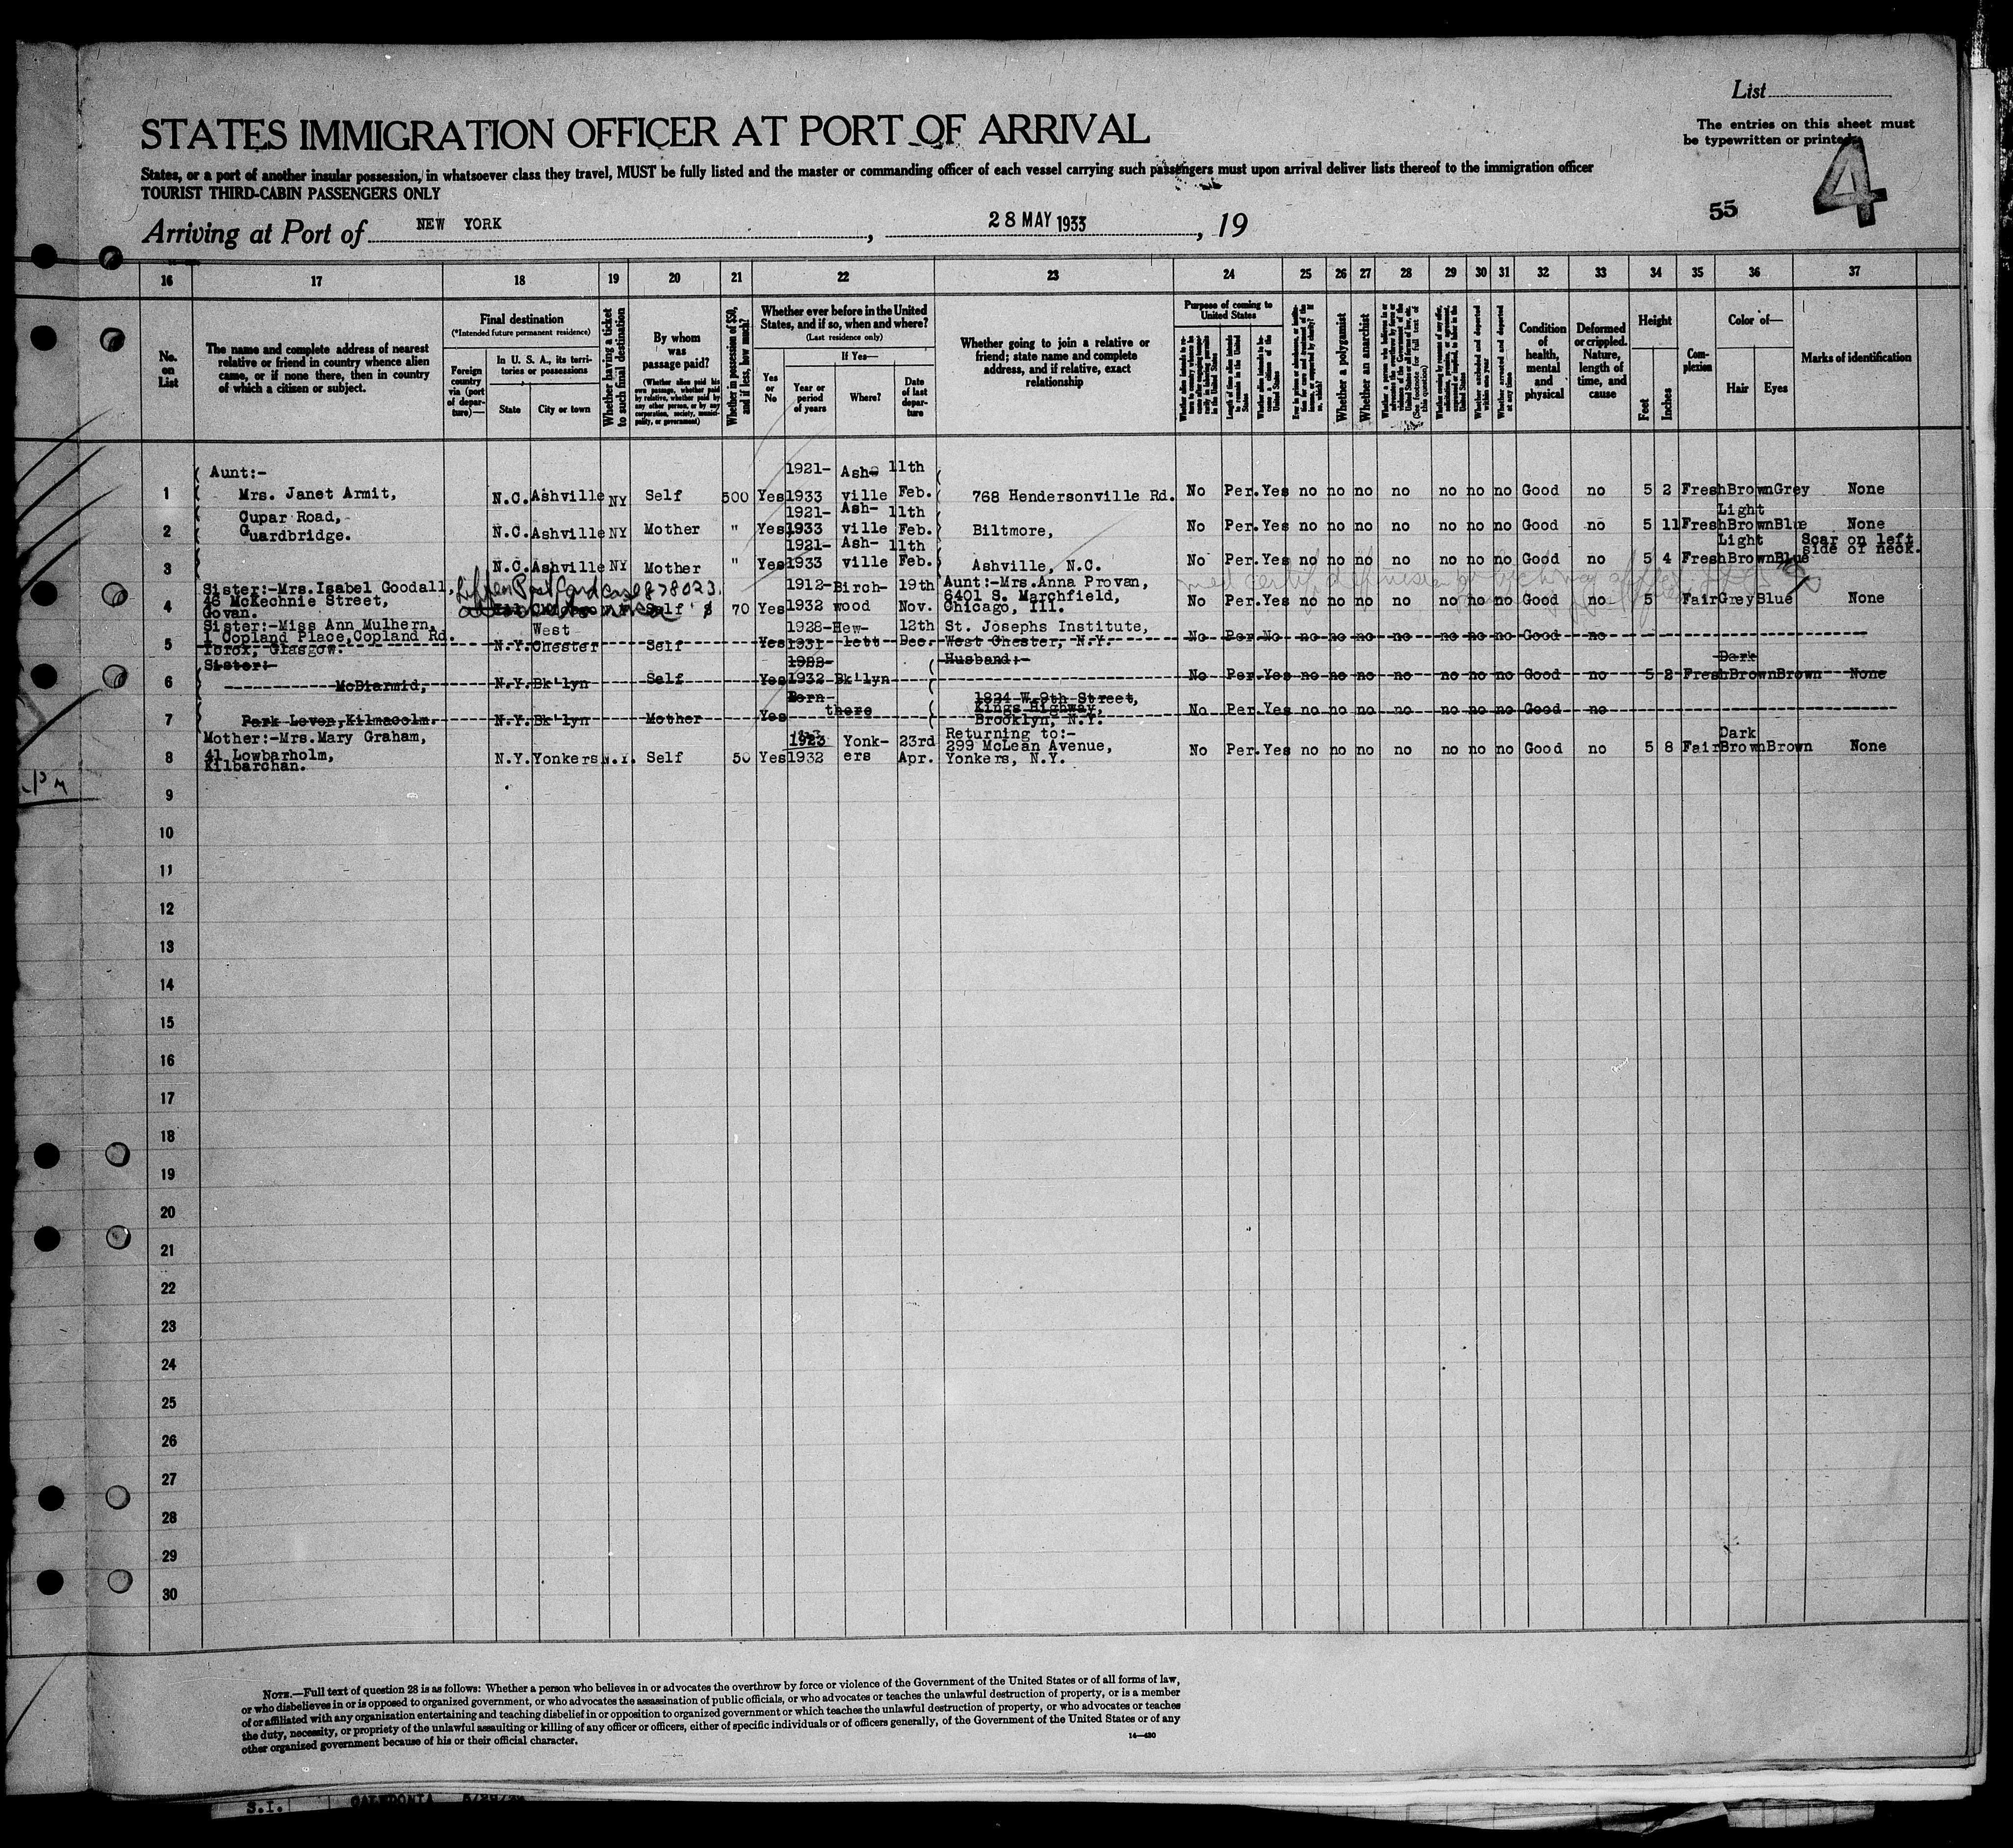 List
STATES IMMIGRATION OFFICER AT PORT OF ARRIVAL
The entries on this sheet must
be typewritten or printed.
4
States, or a port of another insular possession, in whatsoever class they travel, MUST be fully listed and the master or commanding officer of each vessel carrying such passengers must upon arrival deliver lists thereof to the immigration officer
TOURIST THIRD-CABIN PASSENGERS ONLY
55
Arriving at Port of NEW YORK, 28 MAY 1933, 19
16 17 18 19 20 21 22 23 24 25 26 27 28 29 30 31 32 33 34 35 36 37
No. on List
The name and complete address of nearest
relative or friend in country whence alien
came, or if none there, then in country
of which a citizen or subject.
Final destination
(*Intended future permanent residence)
Foreign country via (port of departure)—
In U. S. A., its territories or possessions
State
City or town
Whether having a ticket to such final destination
By whom was passage paid?
(Whether alien paid his own passage, whether paid by relative, whether paid by any other person, or by any corporation, society, municipality, or government)
Whether in possession of $50, and if less, how much?
Whether ever before in the United
States, and if so, when and where?
(Last residence only)
Yes or No
If Yes—
Year or period of years
Where?
Date of last departure
Whether going to join a relative or
friend; state name and complete
address, and if relative, exact
relationship
Purpose of coming to United States
Length of time alien intends to remain in the United States
Whether alien intends to become a citizen of the United States
Whether a polygamist
Whether an anarchist
(See footnote for full text of this question)
Whether excluded and deported within one year
Whether arrested and deported at any time
Condition of health, mental and physical
Deformed or crippled. Nature, length of time, and cause
Height
Feet
Inches
Complexion
Color of—
Hair
Eyes
Marks of identification
( Aunt:- 1921- Ash- 11th
1 Mrs. Janet Armit, N.C. Ashville NY Self 500 Yes 1933 ville Feb. 768 Hendersonville Rd. No Per. Yes no no no no no no no Good no 5 2 Fresh Brown Grey None
Cupar Road, 1921- Ash- 11th Light
2 Guardbridge. N.C. Ashville NY Mother " Yes 1933 ville Feb. Biltmore, No Per. Yes no no no no no no no Good no 5 11 Fresh Brown Blue None
1921- Ash- 11th Light Scar on left
3 N.C. Ashville NY Mother " Yes 1933 ville Feb. Ashville, N.C. No Per. Yes no no no no no no no Good no 5 4 Fresh Brown Blue side of neck.
Sister:-Mrs.Isabel Goodall, 1912- Birch- 19th Aunt:-Mrs.Anna Provan,
46 McKechnie Street, 6401 S. Marchfield,
4 Govan. Self $ 70 Yes 1932 wood Nov. Chicago, Ill. No Per. Yes no no no no no no no Good no 5 Fair Grey Blue None
Sister:-Miss Ann Mulhern, West 1928- Hew- 12th St. Josephs Institute,
1 Copland Place,Copland Rd.
5 Ibrox, Glasgow. N.Y. Chester Self Yes 1931 lett Dec. West Chester, N.Y. No Per No no no no no no no no Good no
Sister:- 1922- Husband:- Dark
6 McDiarmid, N.Y. Bk'lyn Self Yes 1932 Bk'lyn No Per. Yes no no no no no no no Good no 5 2 Fresh Brown Brown None
Born 1824 W.9th Street,
there Kings Highway,
7 Park Leven,Kilmacolm. N.Y. Bk'lyn Mother Yes Brooklyn, N.Y. No Per. Yes no no no no no no no Good no
Mother:-Mrs.Mary Graham, 1923 Yonk- 23rd Returning to:- Dark
41 Lowbarholm, 299 McLean Avenue,
8 Kilbarchan. N.Y. Yonkers N.Y. Self 50 Yes 1932 ers Apr. Yonkers, N.Y. No Per. Yes no no no no no no no Good no 5 8 Fair Brown Brown None
9
10
11
12
13
14
15
16
17
18
19
20
21
22
23
24
25
26
27
28
29
30
NOTE.—Full text of question 28 is as follows: Whether a person who believes in or advocates the overthrow by force or violence of the Government of the United States or of all forms of law,
or who disbelieves in or is opposed to organized government, or who advocates the assassination of public officials, or who advocates or teaches the unlawful destruction of property, or is a member
of or affiliated with any organization entertaining and teaching disbelief in or opposition to organized government or which teaches the unlawful destruction of property, or who advocates or teaches
the duty, necessity, or propriety of the unlawful assaulting or killing of any officer or officers, either of specific individuals or of officers generally, of the Government of the United States or of any
other organized government because of his or their official character.
14—420
S.I. CALEDONIA